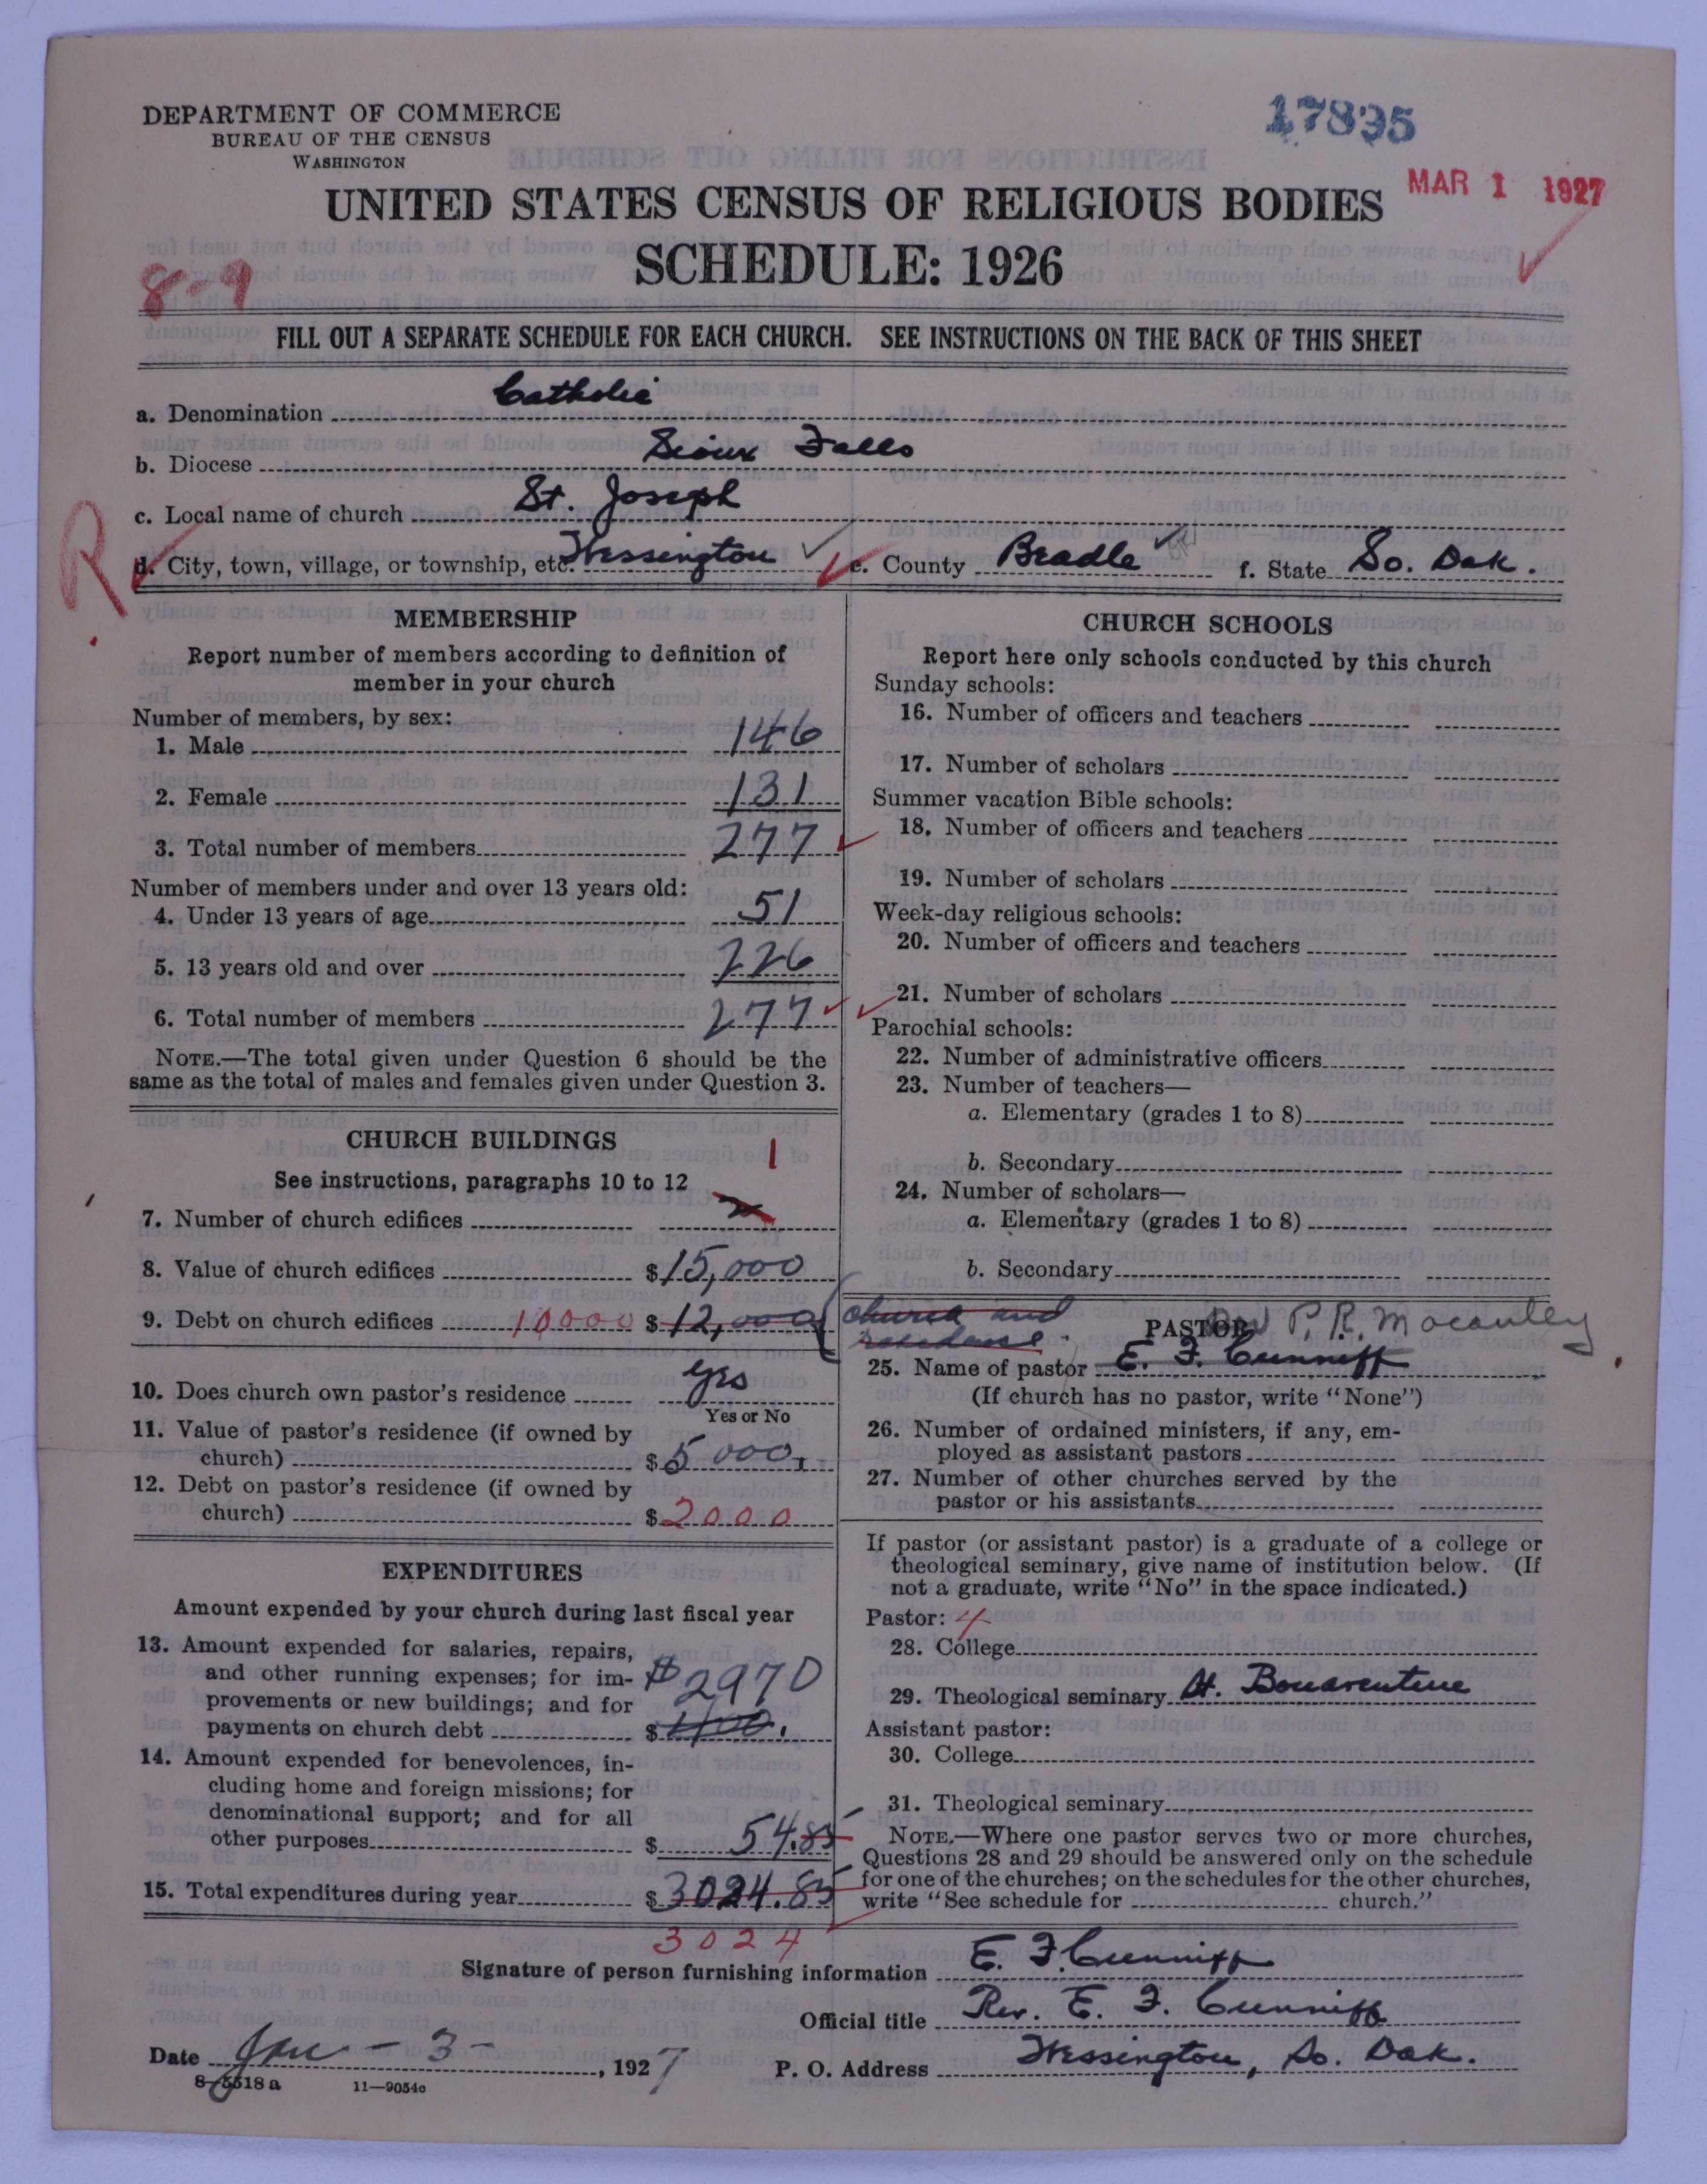 DEPARTMENT OF COMMERCE
BUREAU OF THE CENSUS
WASHINGTON
17835
MAR 1 1927
UNITED STATES CENSUS OF RELIGIOUS BODIES
SCHEDULE: 1926
8-9
FILL OUT A SEPARATE SCHEDULE FOR EACH CHURCH. SEE INSTRUCTIONS ON THE BACK OF THIS SHEET
a. Denomination Catholic
b. Diocese Sioux Falls
c. Local name of church St. Joseph
R
d. City, town, village, or township, etc. Wessington e. County Beadle f. State So. Dak.
MEMBERSHIP
Report number of members according to definition of
member in your church
Number of members, by sex:
1. Male 146
2. Female 131
3. Total number of members 277
Number of members under and over 13 years old:
4. Under 13 years of age 51
5. 13 years old and over 226
6. Total number of members 277
NOTE.—The total given under Question 6 should be the
same as the total of males and females given under Question 3.
CHURCH BUILDINGS
See instructions, paragraphs 10 to 12
1
7. Number of church edifices 2
8. Value of church edifices $15,000
9. Debt on church edifices 10000 $12,000 church and
residence.
10. Does church own pastor's residence yes
Yes or No
11. Value of pastor's residence (if owned by
church) $5000.
12. Debt on pastor's residence (if owned by
church) $2000
EXPENDITURES
Amount expended by your church during last fiscal year
13. Amount expended for salaries, repairs,
and other running expenses; for im-
provements or new buildings; and for
payments on church debt $
$2970
14. Amount expended for benevolences, in-
cluding home and foreign missions; for
denominational support; and for all
other purposes $ 54.85
15. Total expenditures during year $3024.85
3024
CHURCH SCHOOLS
Report here only schools conducted by this church
Sunday schools:
16. Number of officers and teachers
17. Number of scholars
Summer vacation Bible schools:
18. Number of officers and teachers
19. Number of scholars
Week-day religious schools:
20. Number of officers and teachers
21. Number of scholars
Parochial schools:
22. Number of administrative officers
23. Number of teachers—
a. Elementary (grades 1 to 8)
b. Secondary
24. Number of scholars—
a. Elementary (grades 1 to 8)
b. Secondary
PASTOR P. R. Macauley
25. Name of pastor E. F. Cunniff
(If church has no pastor, write "None")
26. Number of ordained ministers, if any, em-
ployed as assistant pastors
27. Number of other churches served by the
pastor or his assistants
If pastor (or assistant pastor) is a graduate of a college or
theological seminary, give name of institution below. (If
not a graduate, write "No" in the space indicated.)
Pastor: 4
28. College
29. Theological seminary St. Bonaventure
Assistant pastor:
30. College
31. Theological seminary
NOTE.—Where one pastor serves two or more churches,
Questions 28 and 29 should be answered only on the schedule
for one of the churches; on the schedules for the other churches,
write "See schedule for church."
Signature of person furnishing information E. F. Cunniff
Official title Rev. E. F. Cunniff
Date Jan - 3 - , 1927 P. O. Address Wessington, So. Dak.
8-5518 a 11—9054c